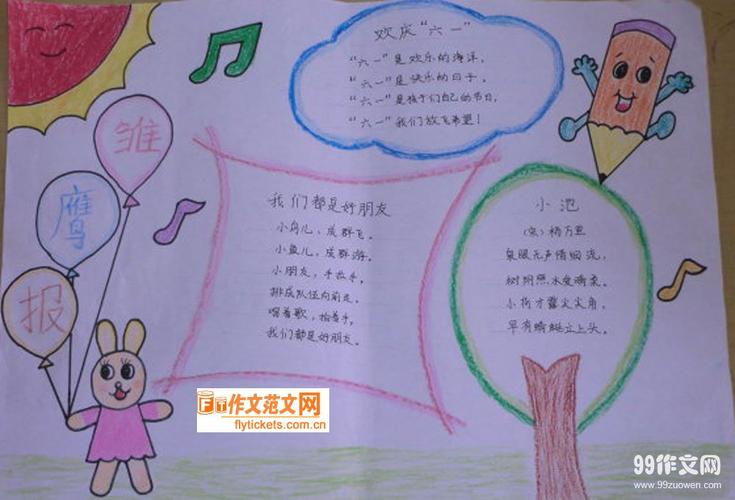 雏
鹰
报
欢庆“六一”
“六一”是欢乐的海洋，
“六一”是快乐的日子，
“六一”是孩子们自己的节日，
“六一”我们放飞希望！
我们都是好朋友
小鸟儿，成群飞。
小鱼儿，成群游。
小朋友，手拉手，
排成队伍向前走。
唱着歌，拍着手，
我们都是好朋友。
小池
（宋）杨万里
泉眼无声惜细流，
树阴照水爱晴柔。
小荷才露尖尖角，
早有蜻蜓立上头。
作文范文网
flytickets.com.cn
99作文网
www.99zuowen.com